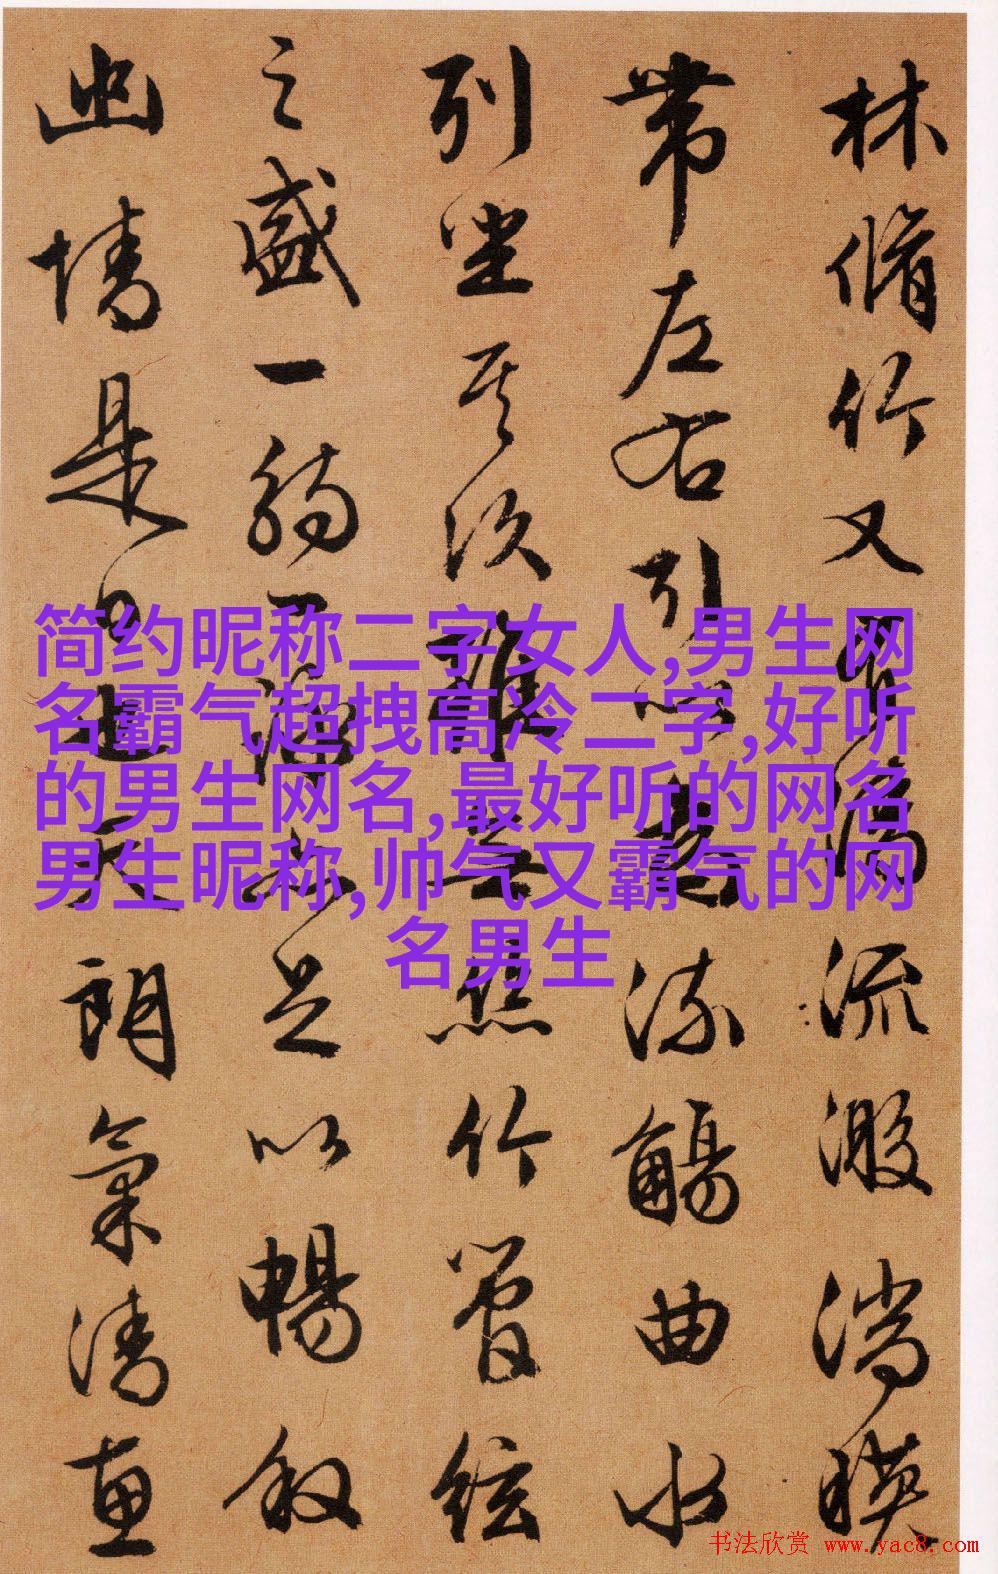 林脩竹又有清流激湍映
帶左右引以為流觴曲水
列坐其次雖無絲竹管絃
之盛一觴一詠亦足以暢敘
幽情是日也天朗氣清惠
简约昵称二字女人,男生网
名霸气超拽高冷二字,好听
的男生网名,最好听的网名
男生昵称,帅气又霸气的网
名男生
书法欣赏 www.yac8.com